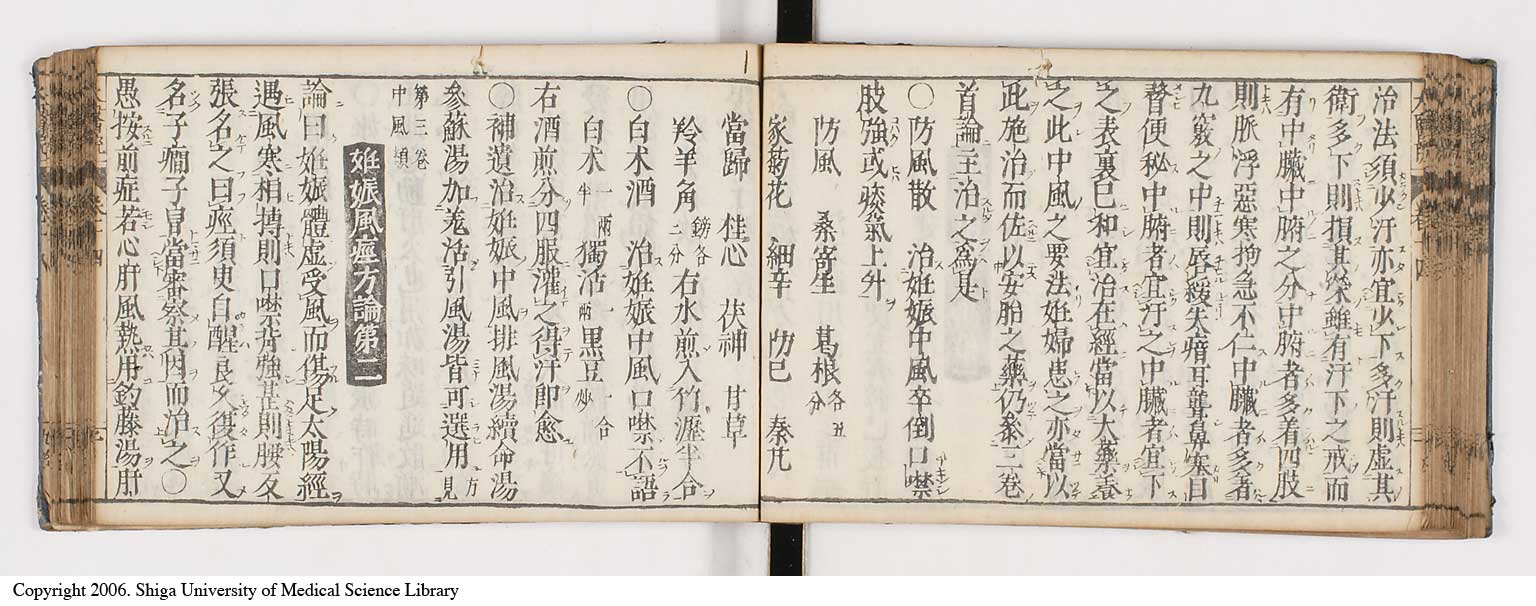 治法須必汗亦宜少下多汗則虛其
衛多下則損其榮雖有汗下之戒而
有中臟中腑之分中腑者多着四肢
則脈浮惡寒拘急不仁中臟者多著
九竅之中則唇緩失瘖耳聾鼻塞目
瞀便秘中腑者宜汗之中臟者宜下
之表裏已和宜治在經當以大藥養
之此中風之要法妊婦患之亦當以
此施治而佐以安胎之藥仍參三卷
首論主治之爲是
〇防風散 治妊娠中風卒倒口噤
肢強或痰氣上升
防風 桑寄生 葛根各五分
家菊花 細辛 防已 秦艽
當歸 桂心 茯神 甘草
羚羊角各二分 右水煎入竹瀝半合
〇白朮酒 治妊娠中風口噤不語
白朮一兩半 獨活一兩 黑豆一合炒
右酒煎分四服灌之得汗即愈
〇補遺治妊娠中風排風湯續命湯
參蘇湯加羗活引風湯皆可選用方見
第三卷中風類
妊娠風痙方論第二
論曰妊娠體虛受風而傷足太陽經
遇風寒相搏則口噤背強甚則腰反
張名之曰痙須臾自醒良久復作又
名子癇子冒當審察其因而治之〇
愚按前症若心肝風熱用釣藤湯肝
Copyright 2006. Shiga University of Medical Science Library